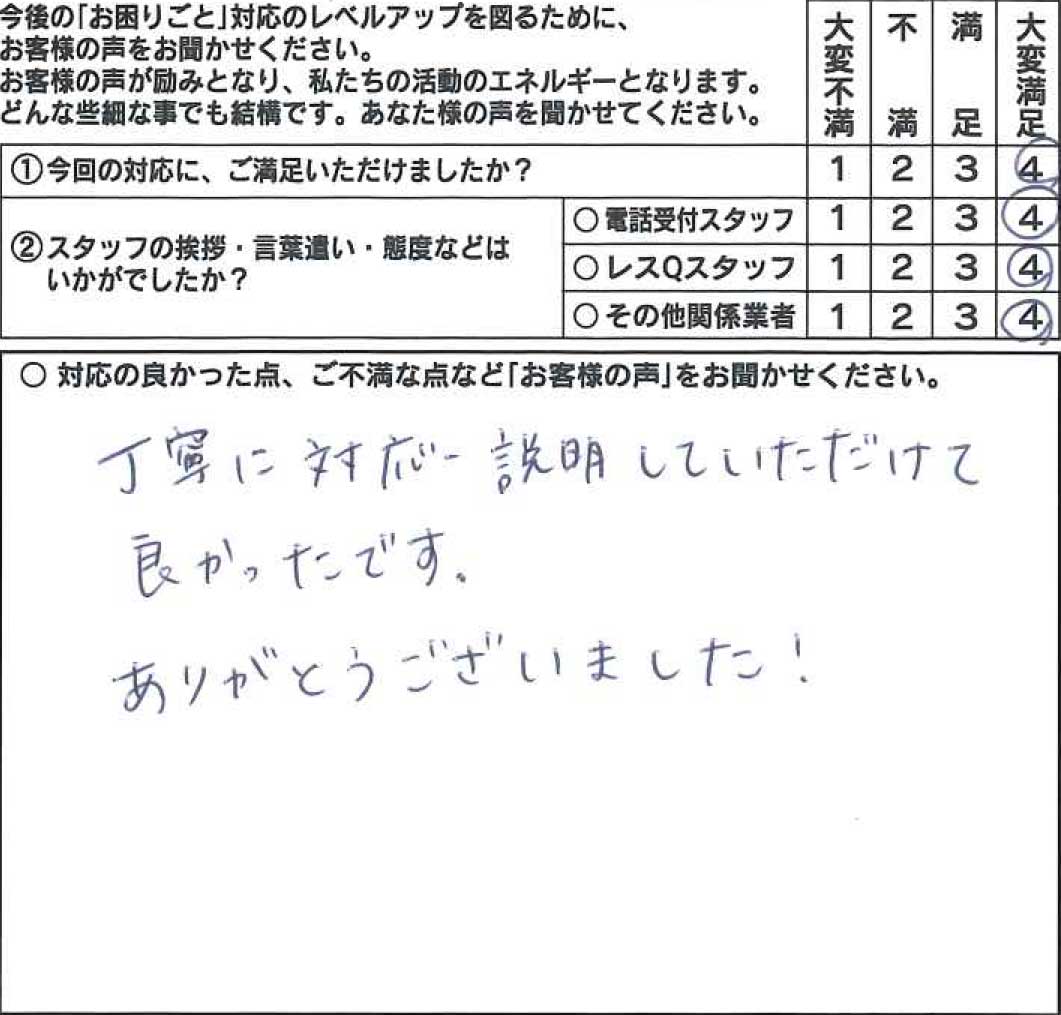 今後の「お困りごと」対応のレベルアップを図るために、
お客様の声をお聞かせください。
お客様の声が励みとなり、私たちの活動のエネルギーとなります。
どんな些細な事でも結構です。あなた様の声を聞かせてください。
大変不満 不満 満足 大変満足
①今回の対応に、ご満足いただけましたか？ 1 2 3 4
②スタッフの挨拶・言葉遣い・態度などは
いかがでしたか？
○電話受付スタッフ 1 2 3 4
○レスQスタッフ 1 2 3 4
○その他関係業者 1 2 3 4
○ 対応の良かった点、ご不満な点など「お客様の声」をお聞かせください。
丁寧に対応・説明していただけて
良かったです。
ありがとうございました！